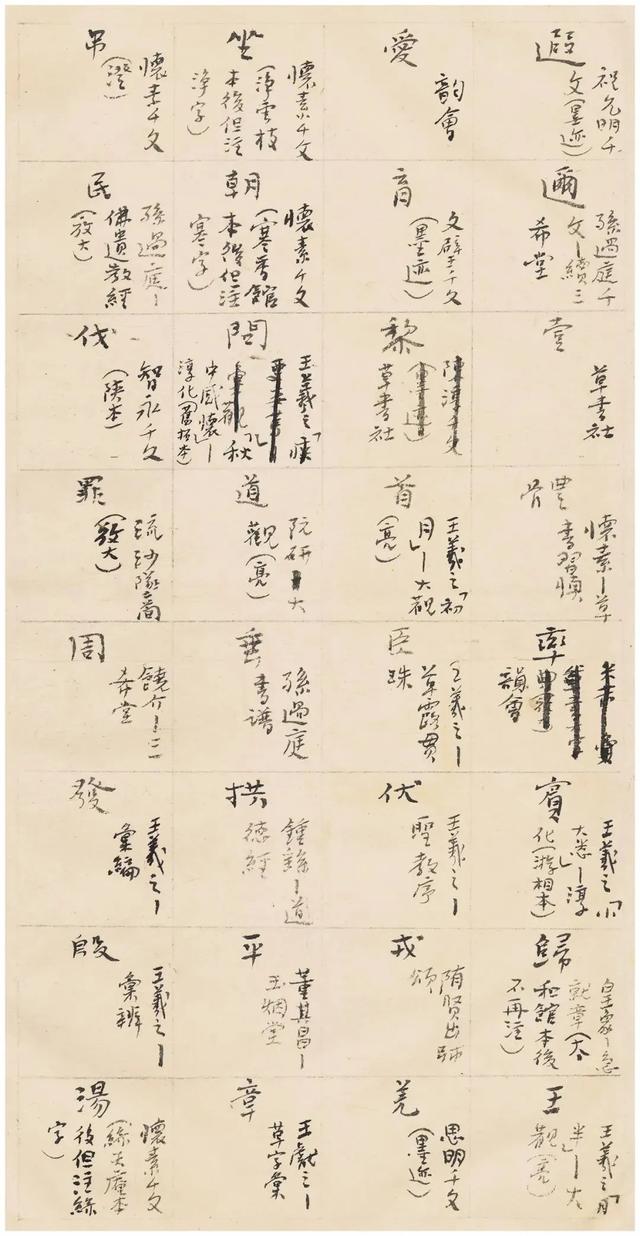 遐
祝允明千
文（墨迹）
邇
孫過庭千
文—續三
希堂
壹
草書社
體
懷素—草
書習慣
率
韻會
賓
王羲之「小
大悉」—淳
化（游相本）
歸
就章（太
和館本後
不再注）
王
王羲之「月
半」—大
觀（亮）
愛
韵會
育
文辟王千文
（墨迹）
黎
草書社
首
王羲之「初
月」—大觀
（亮）
臣
王羲之—
草露貫
珠
伏
王羲之—
聖教序
戎
隋賢出師
頌
羌
思明千文
（墨迹）
坐
懷素小千文
（淨雲枝
本後但注
淨字）
朝
懷素千文
（寒香館
本後但注
寒字）
問
王羲之「疾
秋
中感懷」—
淳化（舊拓本）
道
阮研—大
觀（亮）
垂
孫過庭
書譜
拱
鍾繇—道
德經
平
董其昌—
玉烟堂
章
王獻之—
草字彙
吊
懷素千文
（澄）
民
孫過庭—
佛遺教經
（放大）
伐
智永千文
（陝本）
罪
流沙墜簡
（放大）
周
饒介—三
希堂
發
王羲之—
彙編
殷
王羲之—
彙辨
湯
懷素千文
後但注綠
字）